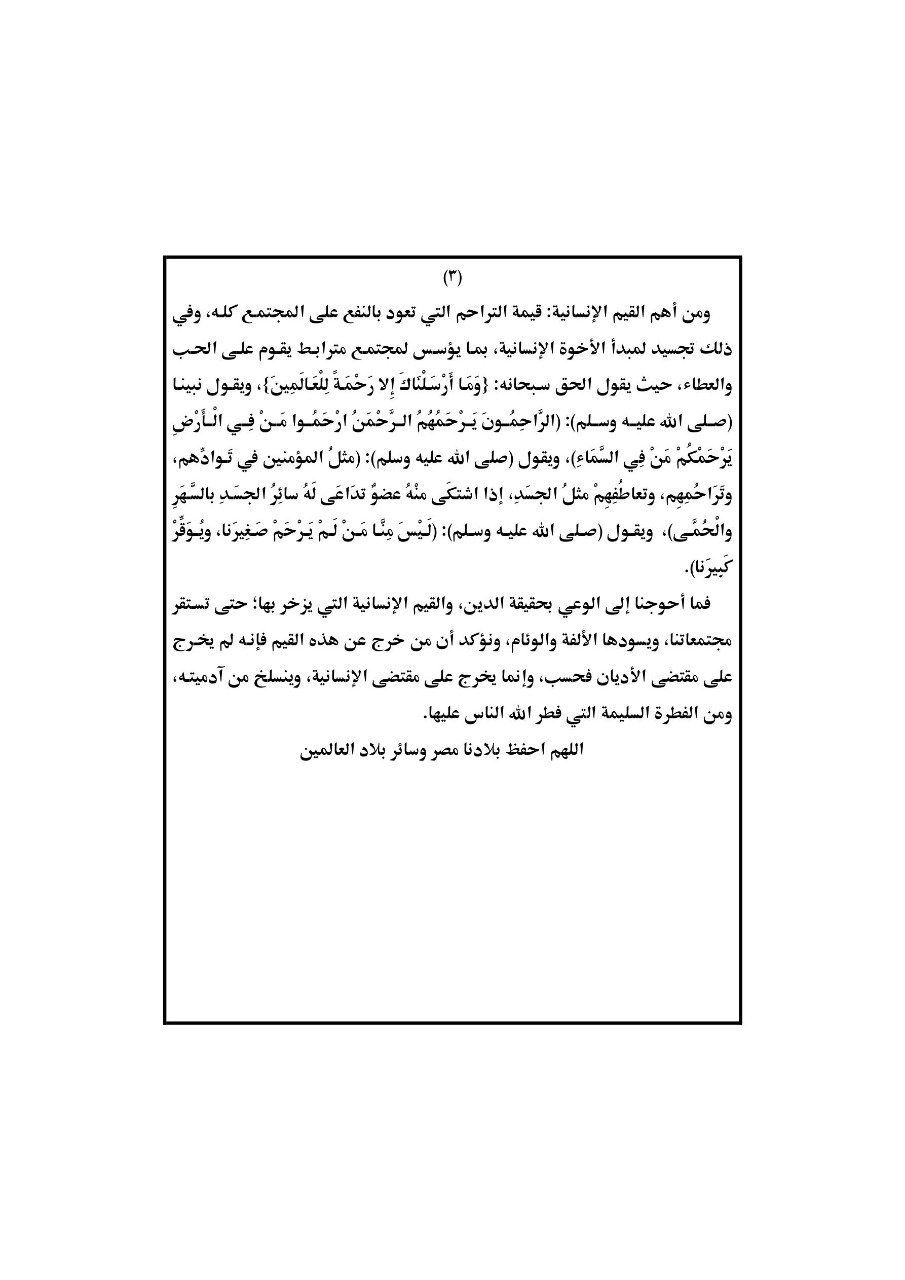 (٣)
ومن أهم القيم الإنسانية: قيمة التراحم التي تعود بالنفع على المجتمع كله، وفي
ذلك تجسيد لمبدأ الأخوة الإنسانية، بما يؤسس لمجتمع مترابط يقوم على الحب
والعطاء، حيث يقول الحق سبحانه: {وَمَا أَرْسَلْنَاكَ إِلا رَحْمَةً لِلْعَالَمِينَ}، ويقول نبينا
(صلى الله عليه وسلم): (الرَّاحِمُونَ يَرْحَمُهُمُ الرَّحْمَنُ ارْحَمُوا مَنْ فِي الْأَرْضِ
يَرْحَمْكُمْ مَنْ فِي السَّمَاءِ)، ويقول (صلى الله عليه وسلم): (مثلُ المؤمنين في تَوادِّهم،
وتَرَاحُمِهِم، وتعاطُفِهِمْ مثلُ الجسَدِ، إذا اشتكَى منْهُ عضوٌ تدَاعَى لَهُ سائِرُ الجسَدِ بالسَّهَرِ
والْحُمَّى)، ويقول (صلى الله عليه وسلم): (لَيْسَ مِنَّا مَنْ لَمْ يَرْحَمْ صَغِيرَنا، ويُوَقِّرْ
كَبِيرَنا).
فما أحوجنا إلى الوعي بحقيقة الدين، والقيم الإنسانية التي يزخر بها؛ حتى تستقر
مجتمعاتنا، ويسودها الألفة والوئام، ونؤكد أن من خرج عن هذه القيم فإنه لم يخرج
على مقتضى الأديان فحسب، وإنما يخرج على مقتضى الإنسانية، وينسلخ من آدميته،
ومن الفطرة السليمة التي فطر الله الناس عليها.
اللهم احفظ بلادنا مصر وسائر بلاد العالمين